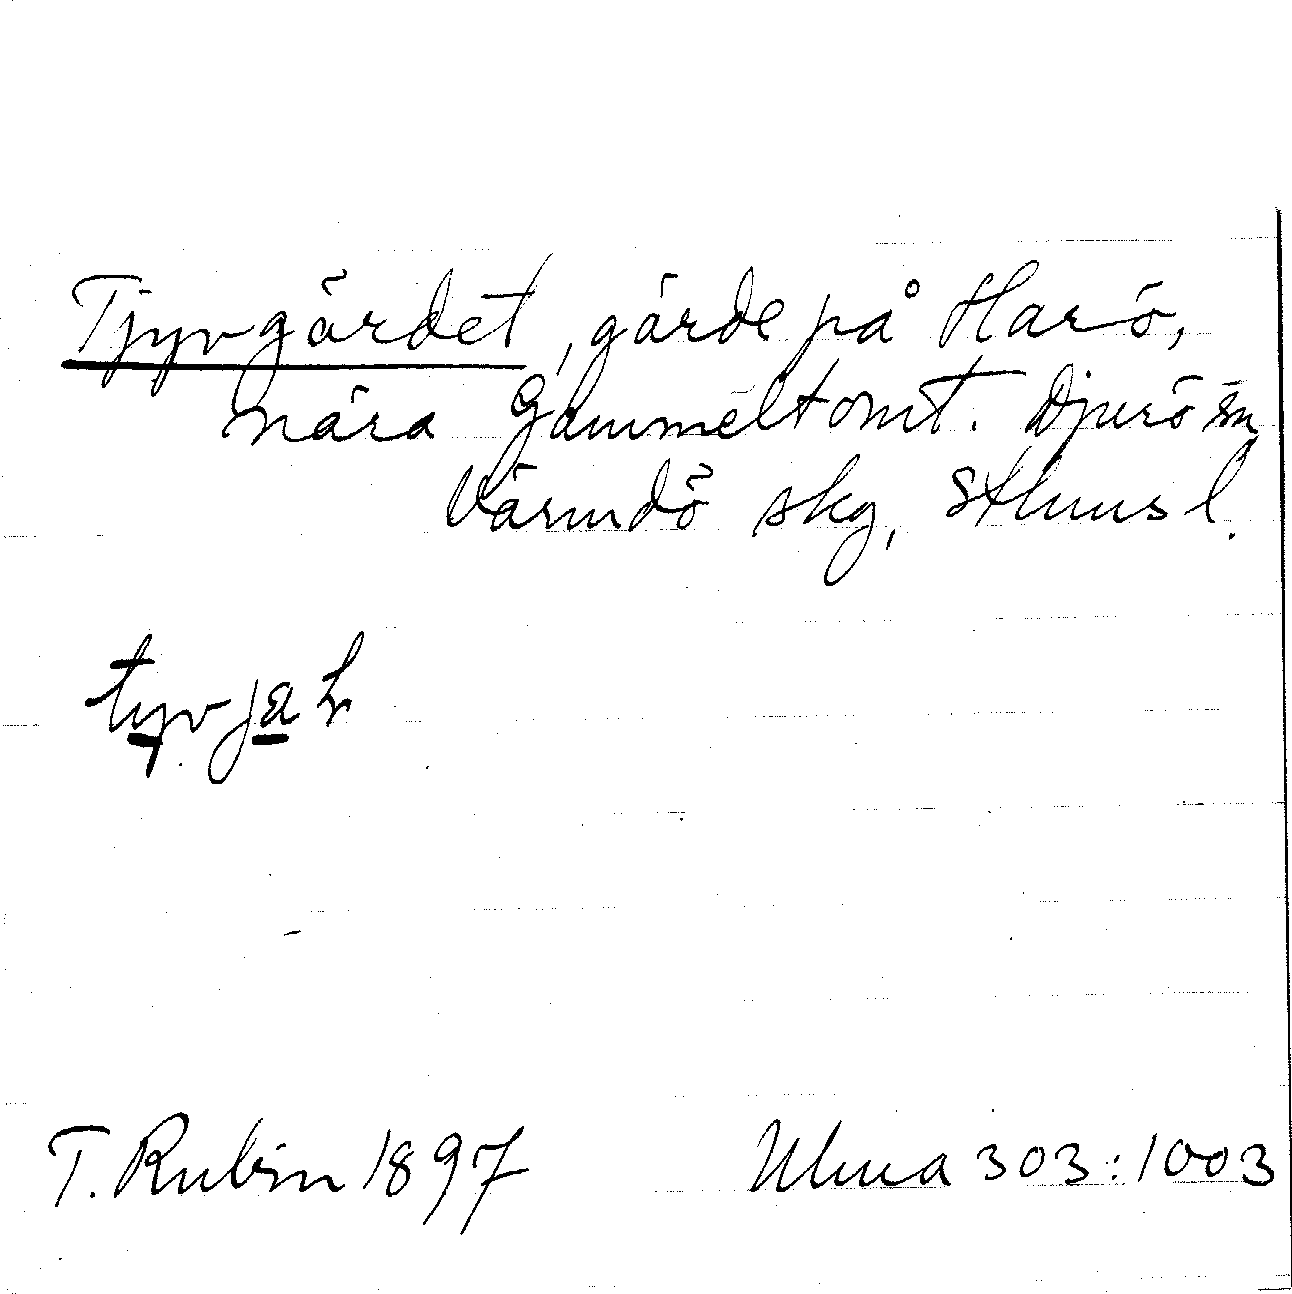 Tjyvgärdet, gärde på Harö,
nära Gammeltomt. Djurö sn
Värmdö skg, Sthms l.
T. Rubin 1897
Ulma 303:1003